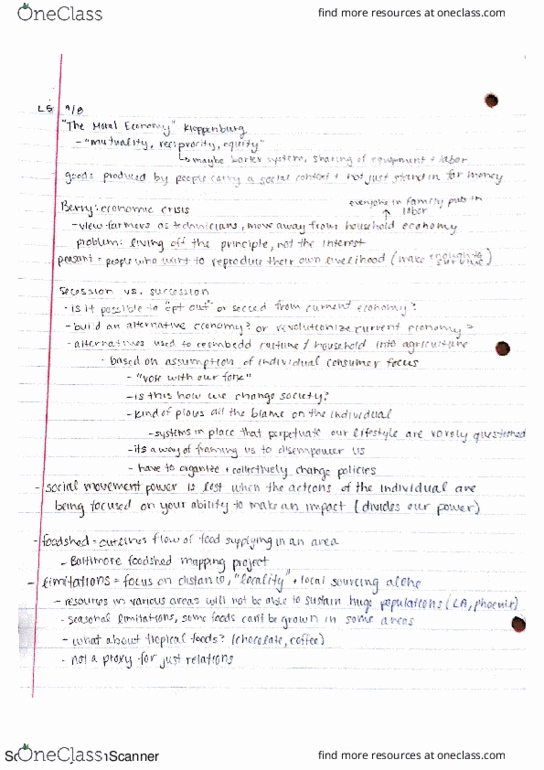 OneClass
find more resources at oneclass.com
L5 9/8
"The Moral Economy" Kloppenburg
- "mutuality, reciprocity, equity"
maybe barter system, sharing of equipment + labor
goods produced by people carry a social context + not just stand in for money
everyone in family puts in labor
Berry: economic crisis
- view farmers as technicians, move away from household economy
problem: living off the principle, not the interest
peasant = people who want to reproduce their own livelihood (make enough to survive)
Secession vs. succession
- is it possible to "opt out" or seced from current economy?
- build an alternative economy? or revolutionize current economy?
- alternatives used to reembedd culture / household into agriculture
- based on assumption of individual consumer focus
- "vote with our fork"
- is this how we change society?
- kind of places all the blame on the individual
- systems in place that perpetuate our lifestyle are rarely questioned
- its a way of framing us to disempower us
- have to organize + collectively change policies
- social movement power is lost when the actions of the individual are
being focused on your ability to make an impact (divides our power)
- foodshed = outlines flow of food supplying in an area
- Baltimore foodshed mapping project
- limitations = focus on distance, "locality" + local sourcing alone
- resources in various areas will not be able to sustain huge populations (LA, Phoenix)
- seasonal limitations, some foods can't be grown in some areas
- what about tropical foods? (chocolate, coffee)
- not a proxy for just relations
OneClass
Scanner
find more resources at oneclass.com